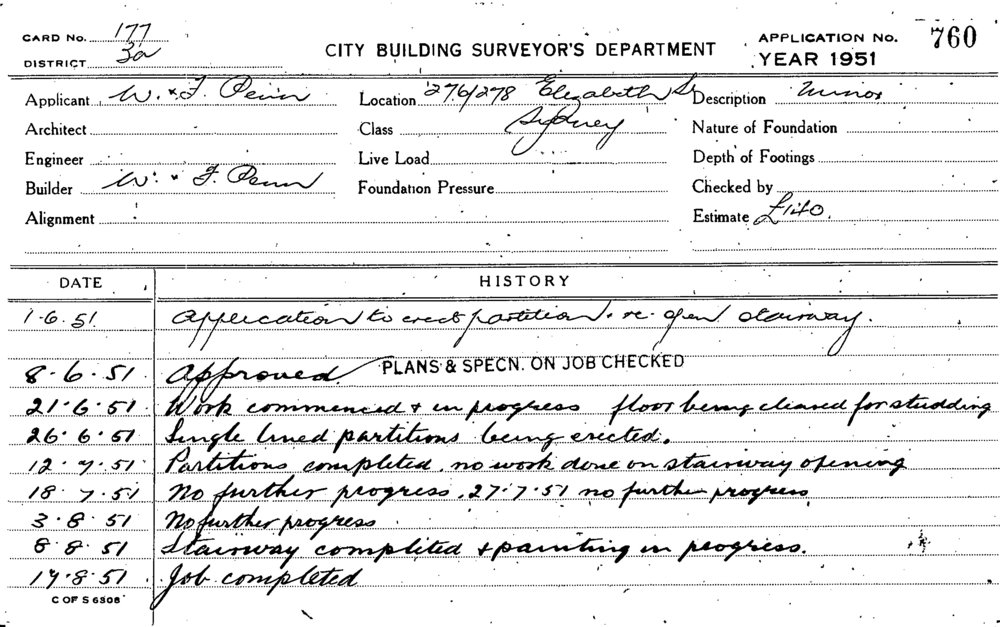 CARD No. 177
DISTRICT 3a
CITY BUILDING SURVEYOR'S DEPARTMENT
APPLICATION No. 760
YEAR 1951
Applicant W. & F. Penn
Location 276/278 Elizabeth St
Sydney
Description Minor
Architect
Class
Nature of Foundation
Engineer
Live Load
Depth of Footings
Builder W. & F. Penn
Foundation Pressure
Checked by
Alignment
Estimate £140.
DATE HISTORY
1.6.51 Application to erect partition & re-open stairway.
8.6.51 Approved. PLANS & SPECN. ON JOB CHECKED
21.6.51 Work commenced & in progress floor being cleared for studding
26.6.51 Single lined partitions being erected.
12.7.51 Partitions completed. no work done on stairway opening
18.7.51 No further progress. 27.7.51 no further progress
3.8.51 No further progress
8.8.51 Stairway complited & painting in progress.
17.8.51 Job completed
C OF S 6308